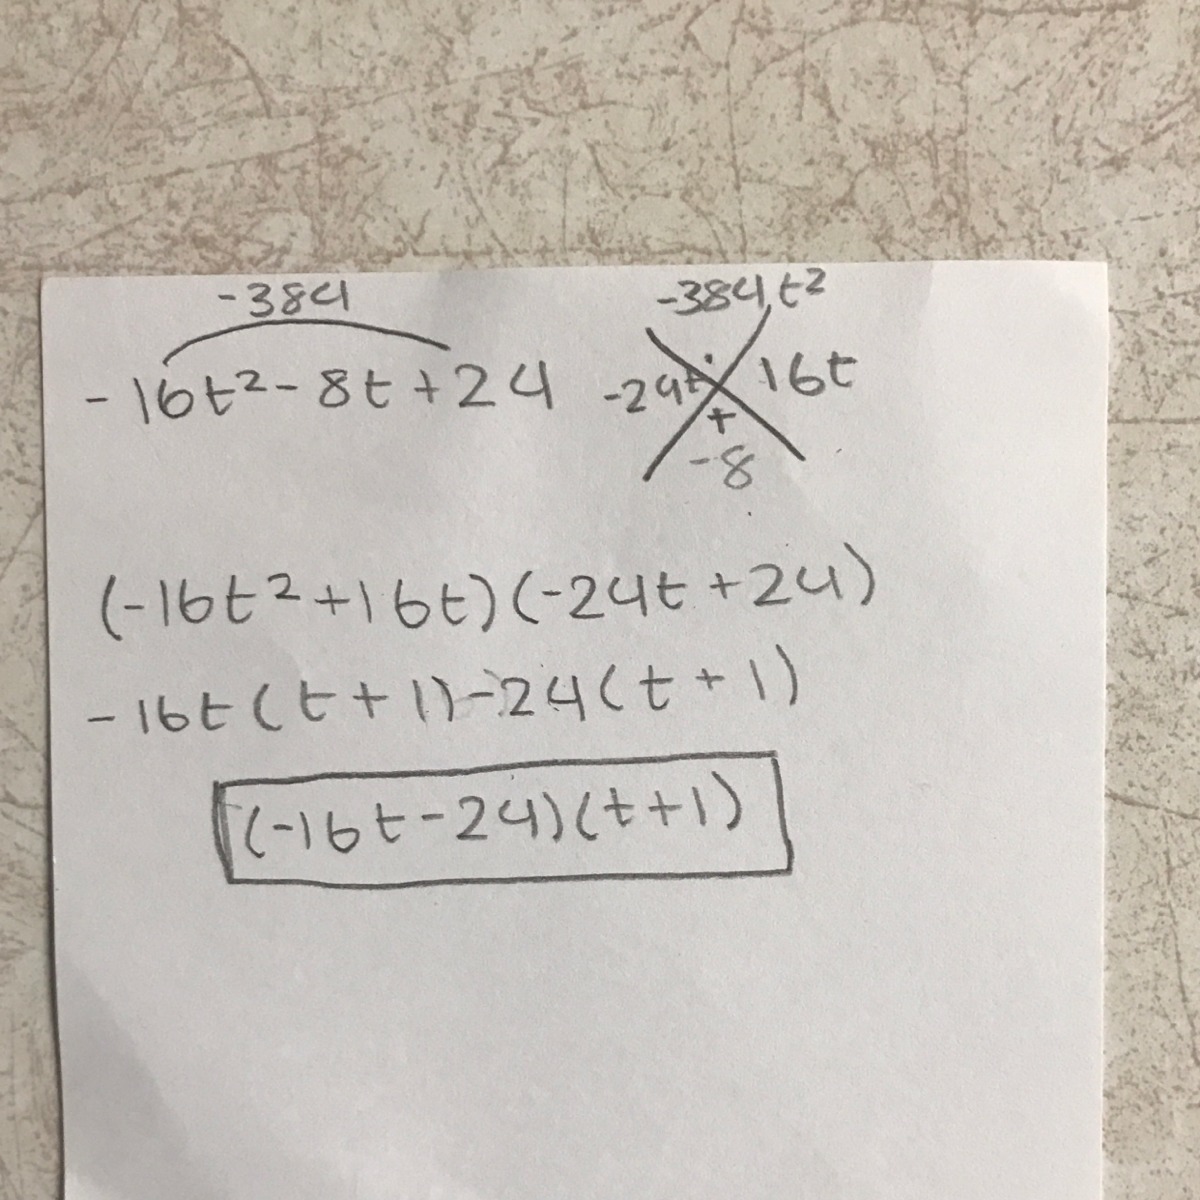 -384
-384t²
-16t² - 8t + 24
-24t · 16t
+
-8
(-16t² + 16t)(-24t + 24)
-16t(t + 1) - 24(t + 1)
(-16t - 24)(t + 1)